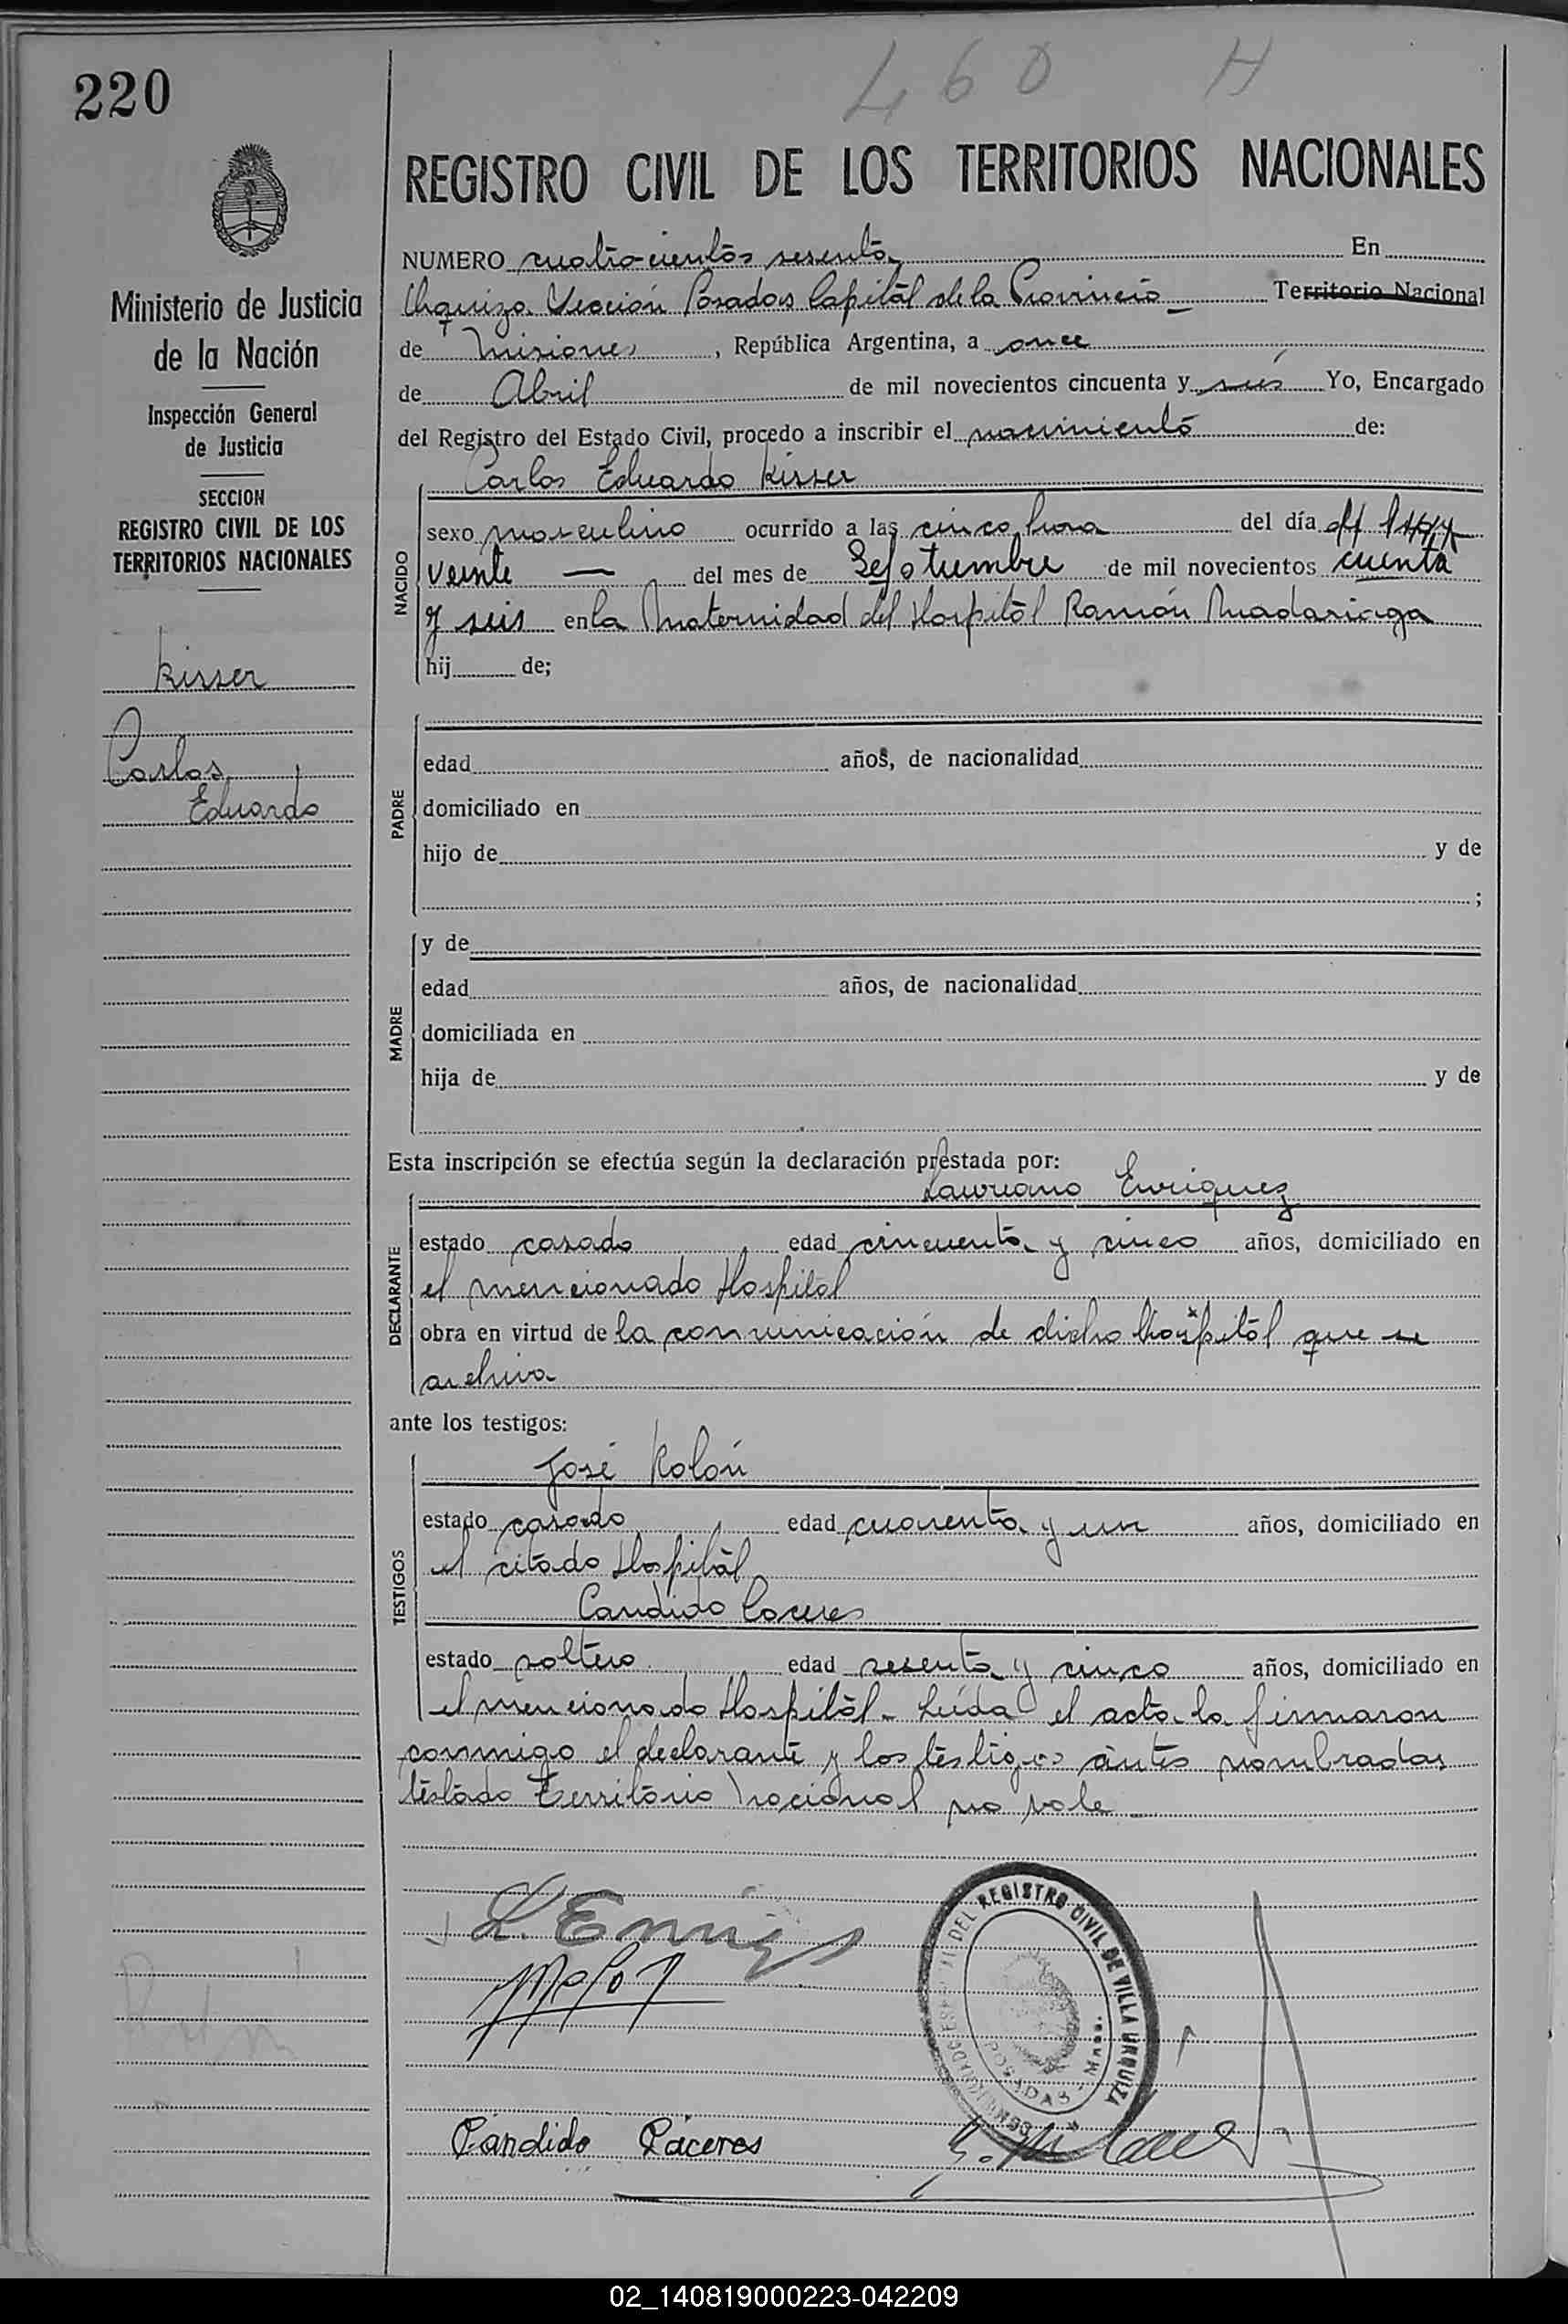 220
460 H
REGISTRO CIVIL DE LOS TERRITORIOS NACIONALES
Ministerio de Justicia
de la Nación
Inspección General
de Justicia
SECCION
REGISTRO CIVIL DE LOS
TERRITORIOS NACIONALES
Kisser
Carlos
Eduardo
NUMERO cuatrocientos sesenta En
Urquiza Sección Posadas Capital de la Provincia Territorio Nacional
de Misiones, República Argentina, a once
de Abril de mil novecientos cincuenta y seis Yo, Encargado
del Registro del Estado Civil, procedo a inscribir el nacimiento de:
Carlos Eduardo Kisser
NACIDO
sexo masculino ocurrido a las cinco hora del día
veinte — del mes de de mil novecientos cuenta
y seis en la Maternidad del Hospital Ramón Madariaga
hij de;
PADRE
edad años, de nacionalidad
domiciliado en
hijo de y de
;
MADRE
y de
edad años, de nacionalidad
domiciliada en
hija de y de
Esta inscripción se efectúa según la declaración prestada por:
Laureano Enriquez
DECLARANTE
estado casado edad cincuenta y cinco años, domiciliado en
el mencionado Hospital
obra en virtud de la comunicación de dicho hospital que se
archiva
ante los testigos:
José Kolón
TESTIGOS
estado casado edad cuarenta y un años, domiciliado en
el citado Hospital
Candido Caceres
estado soltero edad sesenta y cinco años, domiciliado en
el mencionado Hospital. Leída el acta la firmaron
conmigo el declarante y los testigos antes nombrados
testado Territorio Nacional no vale
L. Enriq
DEL REGISTRO CIVIL DE VILLA URQUIZA
POSADAS - Mnes.
Cándido Cáceres
02_140819000223-042209